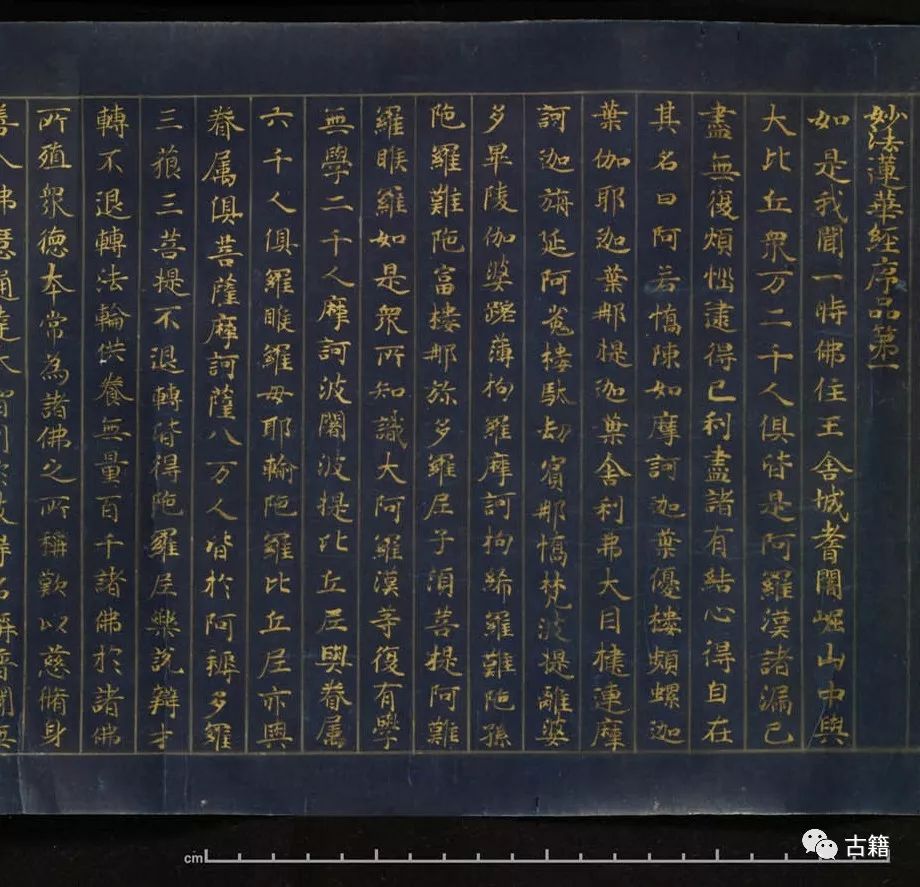 妙法蓮華經序品第一
如是我聞一時佛住王舍城耆闍崛山中與
大比丘眾万二千人俱皆是阿羅漢諸漏已
盡無復煩惱逮得己利盡諸有結心得自在
其名曰阿若憍陳如摩訶迦葉優樓頻螺迦
葉伽耶迦葉那提迦葉舍利弗大目揵連摩
訶迦旃延阿㝹樓馱劫賓那憍梵波提離婆
多畢陵伽婆蹉薄拘羅摩訶拘絺羅難陁孫
陁羅難陁富樓那弥多羅尼子須菩提阿難
羅睺羅如是眾所知識大阿羅漢等復有學
無學二千人摩訶波闍波提比丘尼與眷属
六千人俱羅睺羅母耶輸陁羅比丘尼亦與
眷属俱菩薩摩訶薩八万人皆於阿耨多羅
三藐三菩提不退轉皆得陁羅尼樂說辯才
轉不退轉法輪供養無量百千諸佛於諸佛
所殖眾德本常為諸佛之所稱歎以慈脩身
善入佛慧通達大
cm
古籍